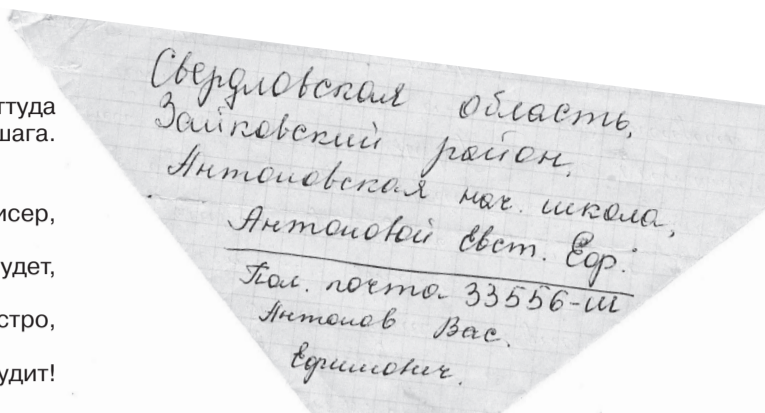 ттуда
шага.
исер,
удет,
стро,
удит!
Свердловская область,
Зайковский район,
Антоновская нач. школа,
Антоновой Евст. Еф.
Пол. почта 33556-Ш
Антонов Вас.
Ефимович.